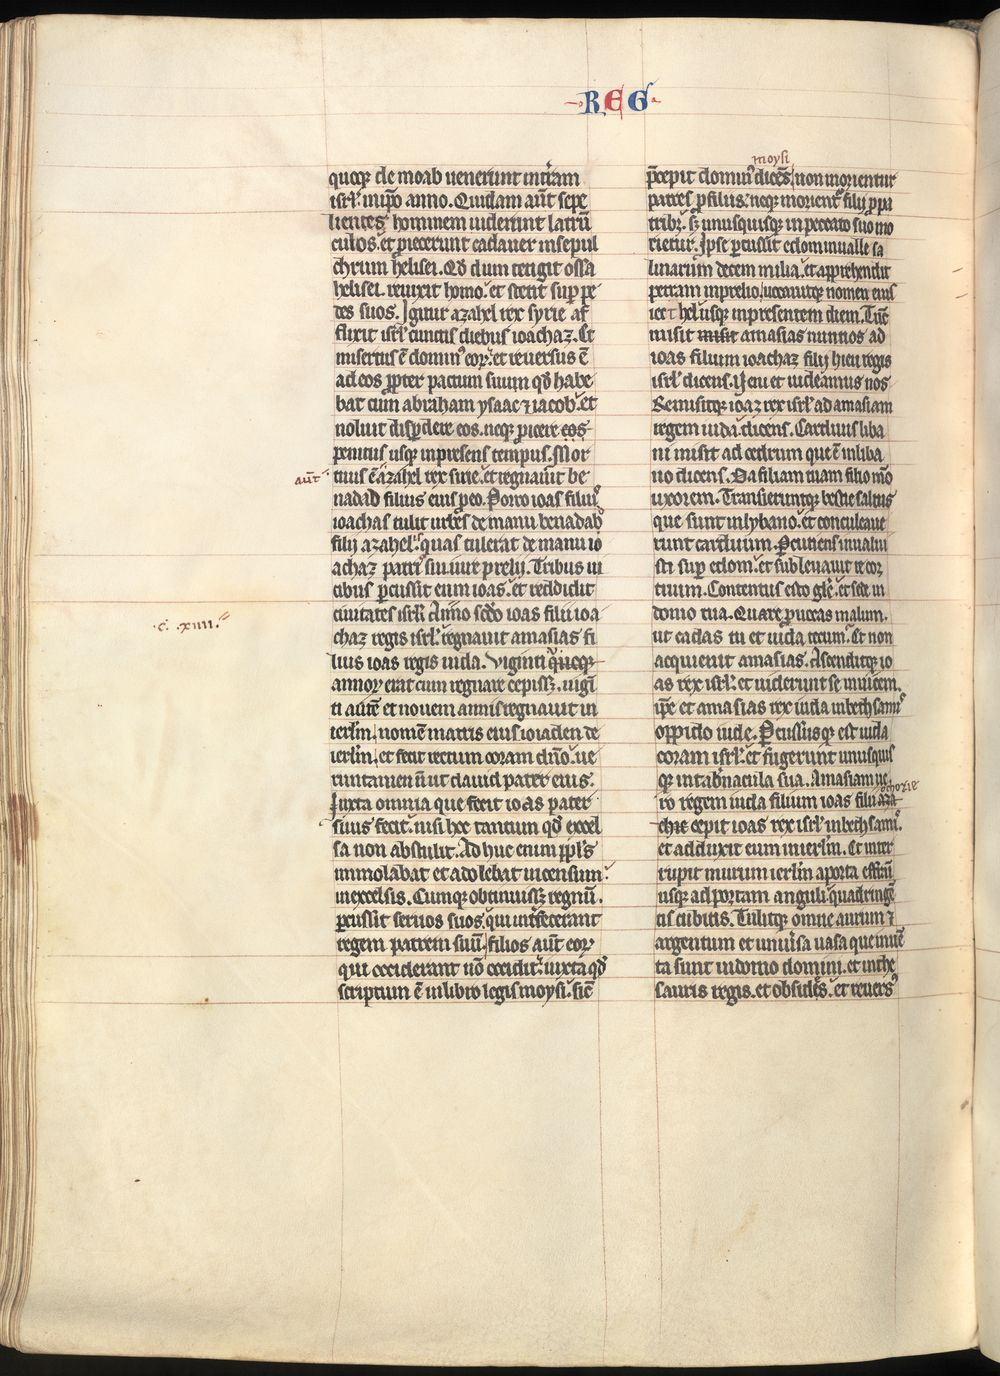 REG
quoqȝ de moab uenerunt in t̾ram
isrl̾. in ip̄o anno. Quidam aut̄ sepe
lientes hominem uiderunt latrū
culos. et ꝓiecerunt cadauer in sepul
chrum helisei. Qd̄ dum tetigit ossa
helisei. reuixit homo. et stetit sup̱ pe
des suos. Igitur azahel rex syrie af
flixit isrl̾ cunctis diebus ioachaz. Et
misertus ē domin᷒ eoꝝ. et reuersus ē
ad eos ꝓpter pactum suum qd̄ habe
bat cum abraham ysaac ⁊ iacob. et
noluit disꝑdere eos. neqȝ ꝓicere eos
penitus usqȝ in presens tempus. Mor
aut̄
tuus ē azahel rex sirie. et regnauit be
nadad filius eius ꝓ eo. Porro ioas filius
ioachas tulit urbes de manu benadab
filij azahel. quas tulerat de manu io
achaz patris sui iure prelij. Tribus ui
cibus ꝑcussit eum ioas. et reddidit
ciuitates isrl̾. Anno sc̄do ioas filii ioa
.c. .xiiii.
chaz regis isrl̾. regnauit amasias fi
lius ioas regis iuda. Viginti quīqȝ
annoꝝ erat cum regnare cepissȝ. uigī
ti autē et nouem annis regnauit in
ierl̄m. nomē matris eius ioiaden de
ierl̄m. et fecit rectum coram dn̄o. ue
runtamen n̄ ut dauid pater eius.
Iuxta omnia que fecit ioas pater
suus fecit. nisi hoc tantum qd̄ excel
sa non abstulit. Ad huc enim ppl̄s
immolabat et adolebat incensum
in excelsis. Cumqȝ obtinuissȝ regnū.
ꝑcussit seruos suos qui int̾fecerant
regem patrem suū. filios aut̄ eoꝝ
qui occiderant nō occidit. iuxta qd̄
scriptum ē in libro legis moysi. sic̄
moysi
p̄cepit domin᷒ dicēs. non morientur
patres ꝓ filiis. neqȝ morient᷒ filij ꝓ pa
tribȝ. sȝ unusquisqȝ in peccato suo mo
rietur. Ipse ꝑcussit edom in ualle sa
linarum decem milia. et apprehendit
petram in prelio. uocauitqȝ nomen eius
iecthel usqȝ in presentem diem. Tūc
misit misit amasias nuntios ad
ioas filium ioachaz filij hieu regis
isrl̾ dicens. Ueni et uideamus nos
Remisitqȝ ioaz rex isrl̾ ad amasiam
regem iuda. dicens. Carduus liba
ni misit ad cedrum que ē in liba
no dicens. Da filiam tuam filio mō
uxorem. Transieruntqȝ bestie saltus
que sunt in lybano. et conculcaue
runt carduum. Percutiens inualui
sti sup̱ edom. et subleuauit te cor
tuum. Contentus esto gl̄e. et sede in
domo tua. Quare ꝓuocas malum.
ut cadas tu et iuda tecum. Et non
acquieuit amasias. Ascenditqȝ io
as rex isrl̾. et uiderunt se inuicem.
ip̄e et amasias rex iuda in bethsames
oppido iude. Percussusqȝ est iuda
coram isrl̾. et fugerunt unusquis
qȝ in tab̾nacula sua. Amasiam ue
ochozie
ro regem iuda filium ioas filii aza
chie cepit ioas rex isrl̾ in bethsames.
et adduxit eum in ierl̄m. Et inter
rupit murum ierl̄m a porta effraī
usqȝ ad portam anguli quadringē
tis cubitis. Tulitqȝ omne aurum ⁊
argentum et uniu̾sa uasa que inuē
ta sunt in domo domini. et in the
sauris regis. et obsides. et reuers᷒